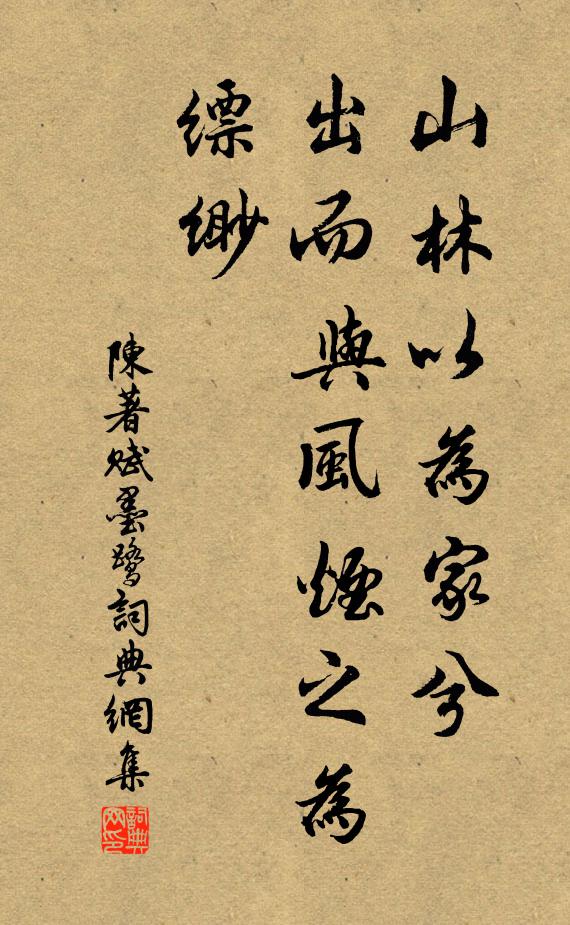 山林以為家兮
出而與風煙之為
縹緲
陳著賦墨鷺詞典網集
詞典网印